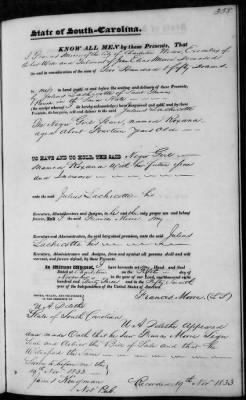 358
State of South-Carolina.
KNOW ALL MEN by these Presents, That
I Francis Moore of the City of Charleston
last Will and Testament of
for and in consideration of the sum of Two Hundred & fifty Dollars
to me in hand paid at and before the sealing and delivery of these Presents,
by Julius Lachicotte of
(the receipt whereof I do hereby acknowledge) have bargained and sold, and by these
Presents, do bargain, sell and deliver to the said Julius Lachicotte
One Negro Girl Slave, named Roxana
aged about fourteen Years old
TO HAVE AND TO HOLD, THE SAID Negro Girl
named Roxana with her future Issue
and Increase
unto the said Julius Lachicotte his
Executors, Administrators and Assigns, to his and their only proper use and behoof,
forever. And I the said Francis Moore my
Executors and Administrators, the said bargained premises, unto the said Julius
Lachicotte his
Executors, Administrators and Assigns, from and against all persons shall and will
warrant, and forever defend, by these Presents.
In Witness Whereof, I have hereunto set my Hand and Seal
Dated at Charleston on the day of
November in the year of our Lord one thousand eight
hundred and thirty three and in the fifty eighth
year of the Independence of the United States of America.
Francis Moore (L.S.)
SIGNED, SEALED, AND DELIVERED
IN THE PRESENCE OF
State of South Carolina
appeared
and made Oath that he saw Francis Moore Sign
Seal and deliver the Bill of Sale and that he
Witnessed the same
Sworn to before me this
19 Nov. 1833
Not. Pub.
Recorded 19th Nov. 1833